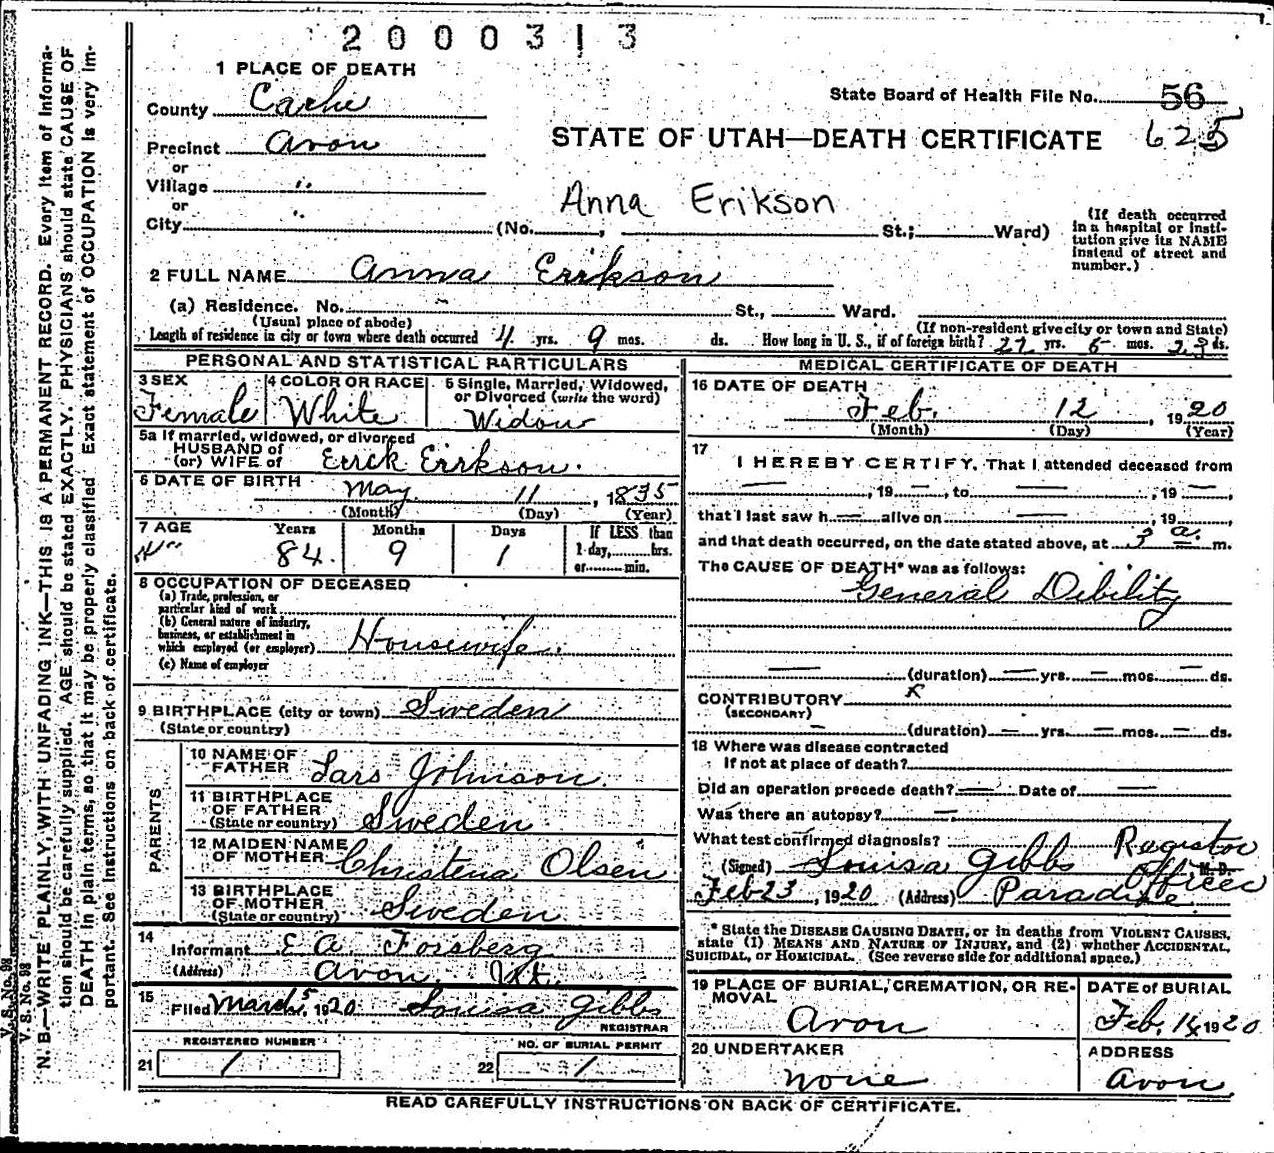 2000313
1 PLACE OF DEATH
County Cache
State Board of Health File No. 56
625
Precinct Avon
STATE OF UTAH—DEATH CERTIFICATE
or
Village "
or
Anna Erikson
City " (No. , St.; Ward)
(If death occurred in a hospital or institution give its NAME instead of street and number.)
2 FULL NAME Anna Erikson
(a) Residence. No. St., Ward.
(Usual place of abode) (If non-resident give city or town and State)
Length of residence in city or town where death occurred 4 yrs. 9 mos. ds. How long in U. S., if of foreign birth? 27 yrs. 5 mos. 23 ds.
PERSONAL AND STATISTICAL PARTICULARS
3 SEX Female
4 COLOR OR RACE White
5 Single, Married, Widowed, or Divorced (write the word) Widow
5a If married, widowed, or divorced
HUSBAND of
(or) WIFE of Errck Errkson.
6 DATE OF BIRTH May 11, 1835
(Month) (Day) (Year)
7 AGE Years Months Days If LESS than
84. 9 1 1 day, hrs.
or min.
8 OCCUPATION OF DECEASED
(a) Trade, profession, or
particular kind of work
(b) General nature of industry,
business, or establishment in
which employed (or employer) Housewife.
(c) Name of employer
9 BIRTHPLACE (city or town) Sweden
(State or country)
PARENTS
10 NAME OF
FATHER Lars Johnson.
11 BIRTHPLACE
OF FATHER
(State or country) Sweden
12 MAIDEN NAME
OF MOTHER Christena Olsen
13 BIRTHPLACE
OF MOTHER
(State or country) Sweden
14
Informant E A Forsberg
(Address) Avon, Ut.
15
Filed March 5, 1920 Louisa Gibbs
REGISTRAR
REGISTERED NUMBER
21 1
NO. OF BURIAL PERMIT
22 1
MEDICAL CERTIFICATE OF DEATH
16 DATE OF DEATH
Feb. 12, 1920
(Month) (Day) (Year)
17
I HEREBY CERTIFY, That I attended deceased from
—, 19—, to —, 19—,
that I last saw h— alive on —, 19,
and that death occurred, on the date stated above, at 3 a. m.
The CAUSE OF DEATH* was as follows:
General Dibility
— (duration) — yrs. — mos. — ds.
CONTRIBUTORY
(SECONDARY)
— (duration) — yrs. — mos. — ds.
18 Where was disease contracted
If not at place of death?
Did an operation precede death? — Date of —
Was there an autopsy? —
What test confirmed diagnosis?
(Signed) Louisa Gibbs Registor M. D.
Officer
Feb 23, 1920 (Address) Paradise
* State the DISEASE CAUSING DEATH, or in deaths from VIOLENT CAUSES,
state (1) MEANS AND NATURE OF INJURY, and (2) whether ACCIDENTAL,
SUICIDAL, or HOMICIDAL. (See reverse side for additional space.)
19 PLACE OF BURIAL, CREMATION, OR RE-
MOVAL
Avon
DATE of BURIAL
Feb. 14 1920
20 UNDERTAKER
none
ADDRESS
Avon
READ CAREFULLY INSTRUCTIONS ON BACK OF CERTIFICATE.
V. S. No. 98
V. S. No. 98
N. B.—WRITE PLAINLY, WITH UNFADING INK—THIS IS A PERMANENT RECORD. Every item of informa-
tion should be carefully supplied. AGE should be stated EXACTLY. PHYSICIANS should state CAUSE OF
DEATH in plain terms, so that it may be properly classified. Exact statement of OCCUPATION is very im-
portant. See instructions on back of certificate.